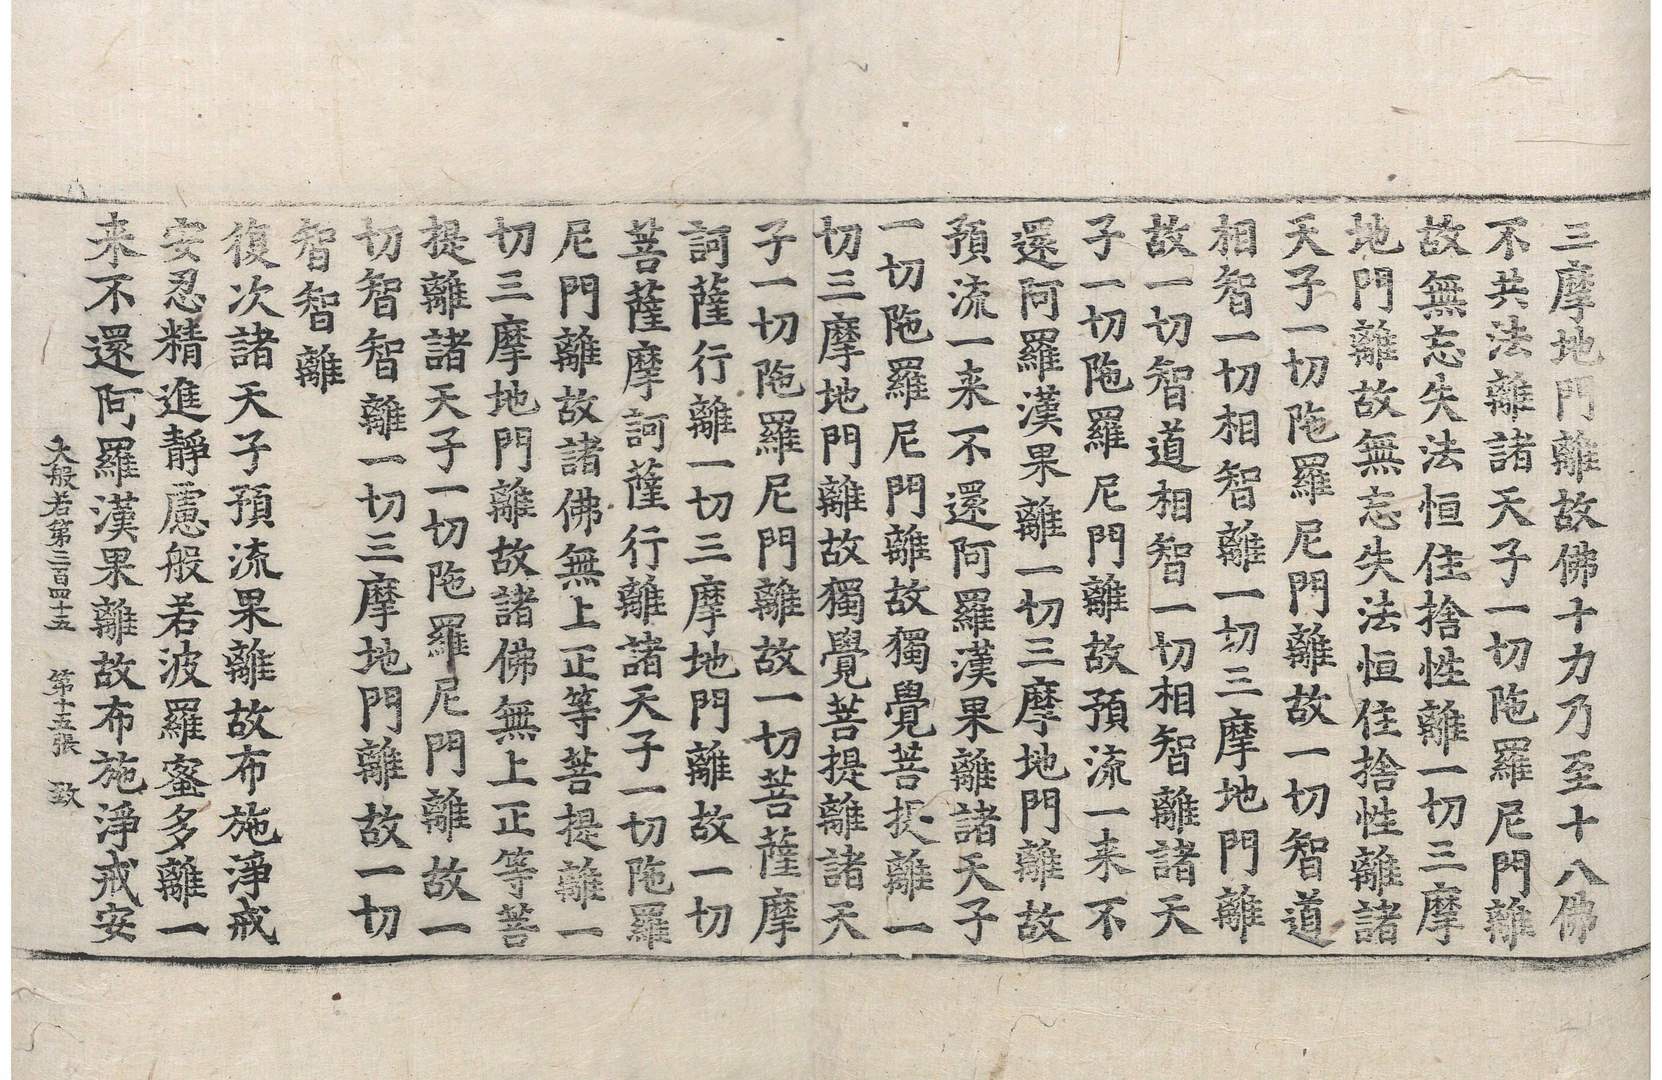 三摩地門離故佛十力乃至十八佛
不共法離諸天子一切陁羅尼門離
故無忘失法恒住捨性離一切三摩
地門離故無忘失法恒住捨性離諸
天子一切陁羅尼門離故一切智道
相智一切相智離一切三摩地門離
故一切智道相智一切相智離諸天
子一切陁羅尼門離故預流一来不
還阿羅漢果離一切三摩地門離故
預流一来不還阿羅漢果離諸天子
一切陁羅尼門離故獨覺菩提離一
切三摩地門離故獨覺菩提離諸天
子一切陁羅尼門離故一切菩薩摩
訶薩行離一切三摩地門離故一切
菩薩摩訶薩行離諸天子一切陁羅
尼門離故諸佛無上正等菩提離一
切三摩地門離故諸佛無上正等菩
提離諸天子一切陁羅尼門離故一
切智智離一切三摩地門離故一切
智智離
復次諸天子預流果離故布施淨戒
安忍精進靜慮般若波羅蜜多離一
来不還阿羅漢果離故布施淨戒安
大般若第三百四十五 第十五張 致